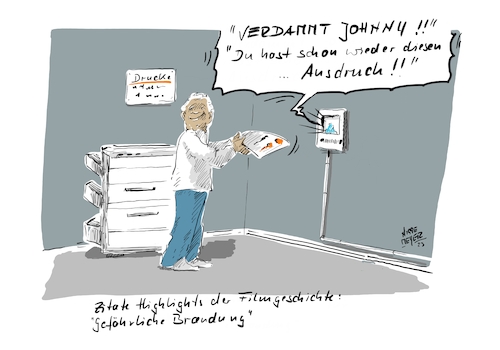 "VERDAMMT JOHNNY!!"
"Du hast schon wieder diesen
... Ausdruck!!"
Drucke
Zitate Highlights der Filmgeschichte:
"Gefährliche Brandung"